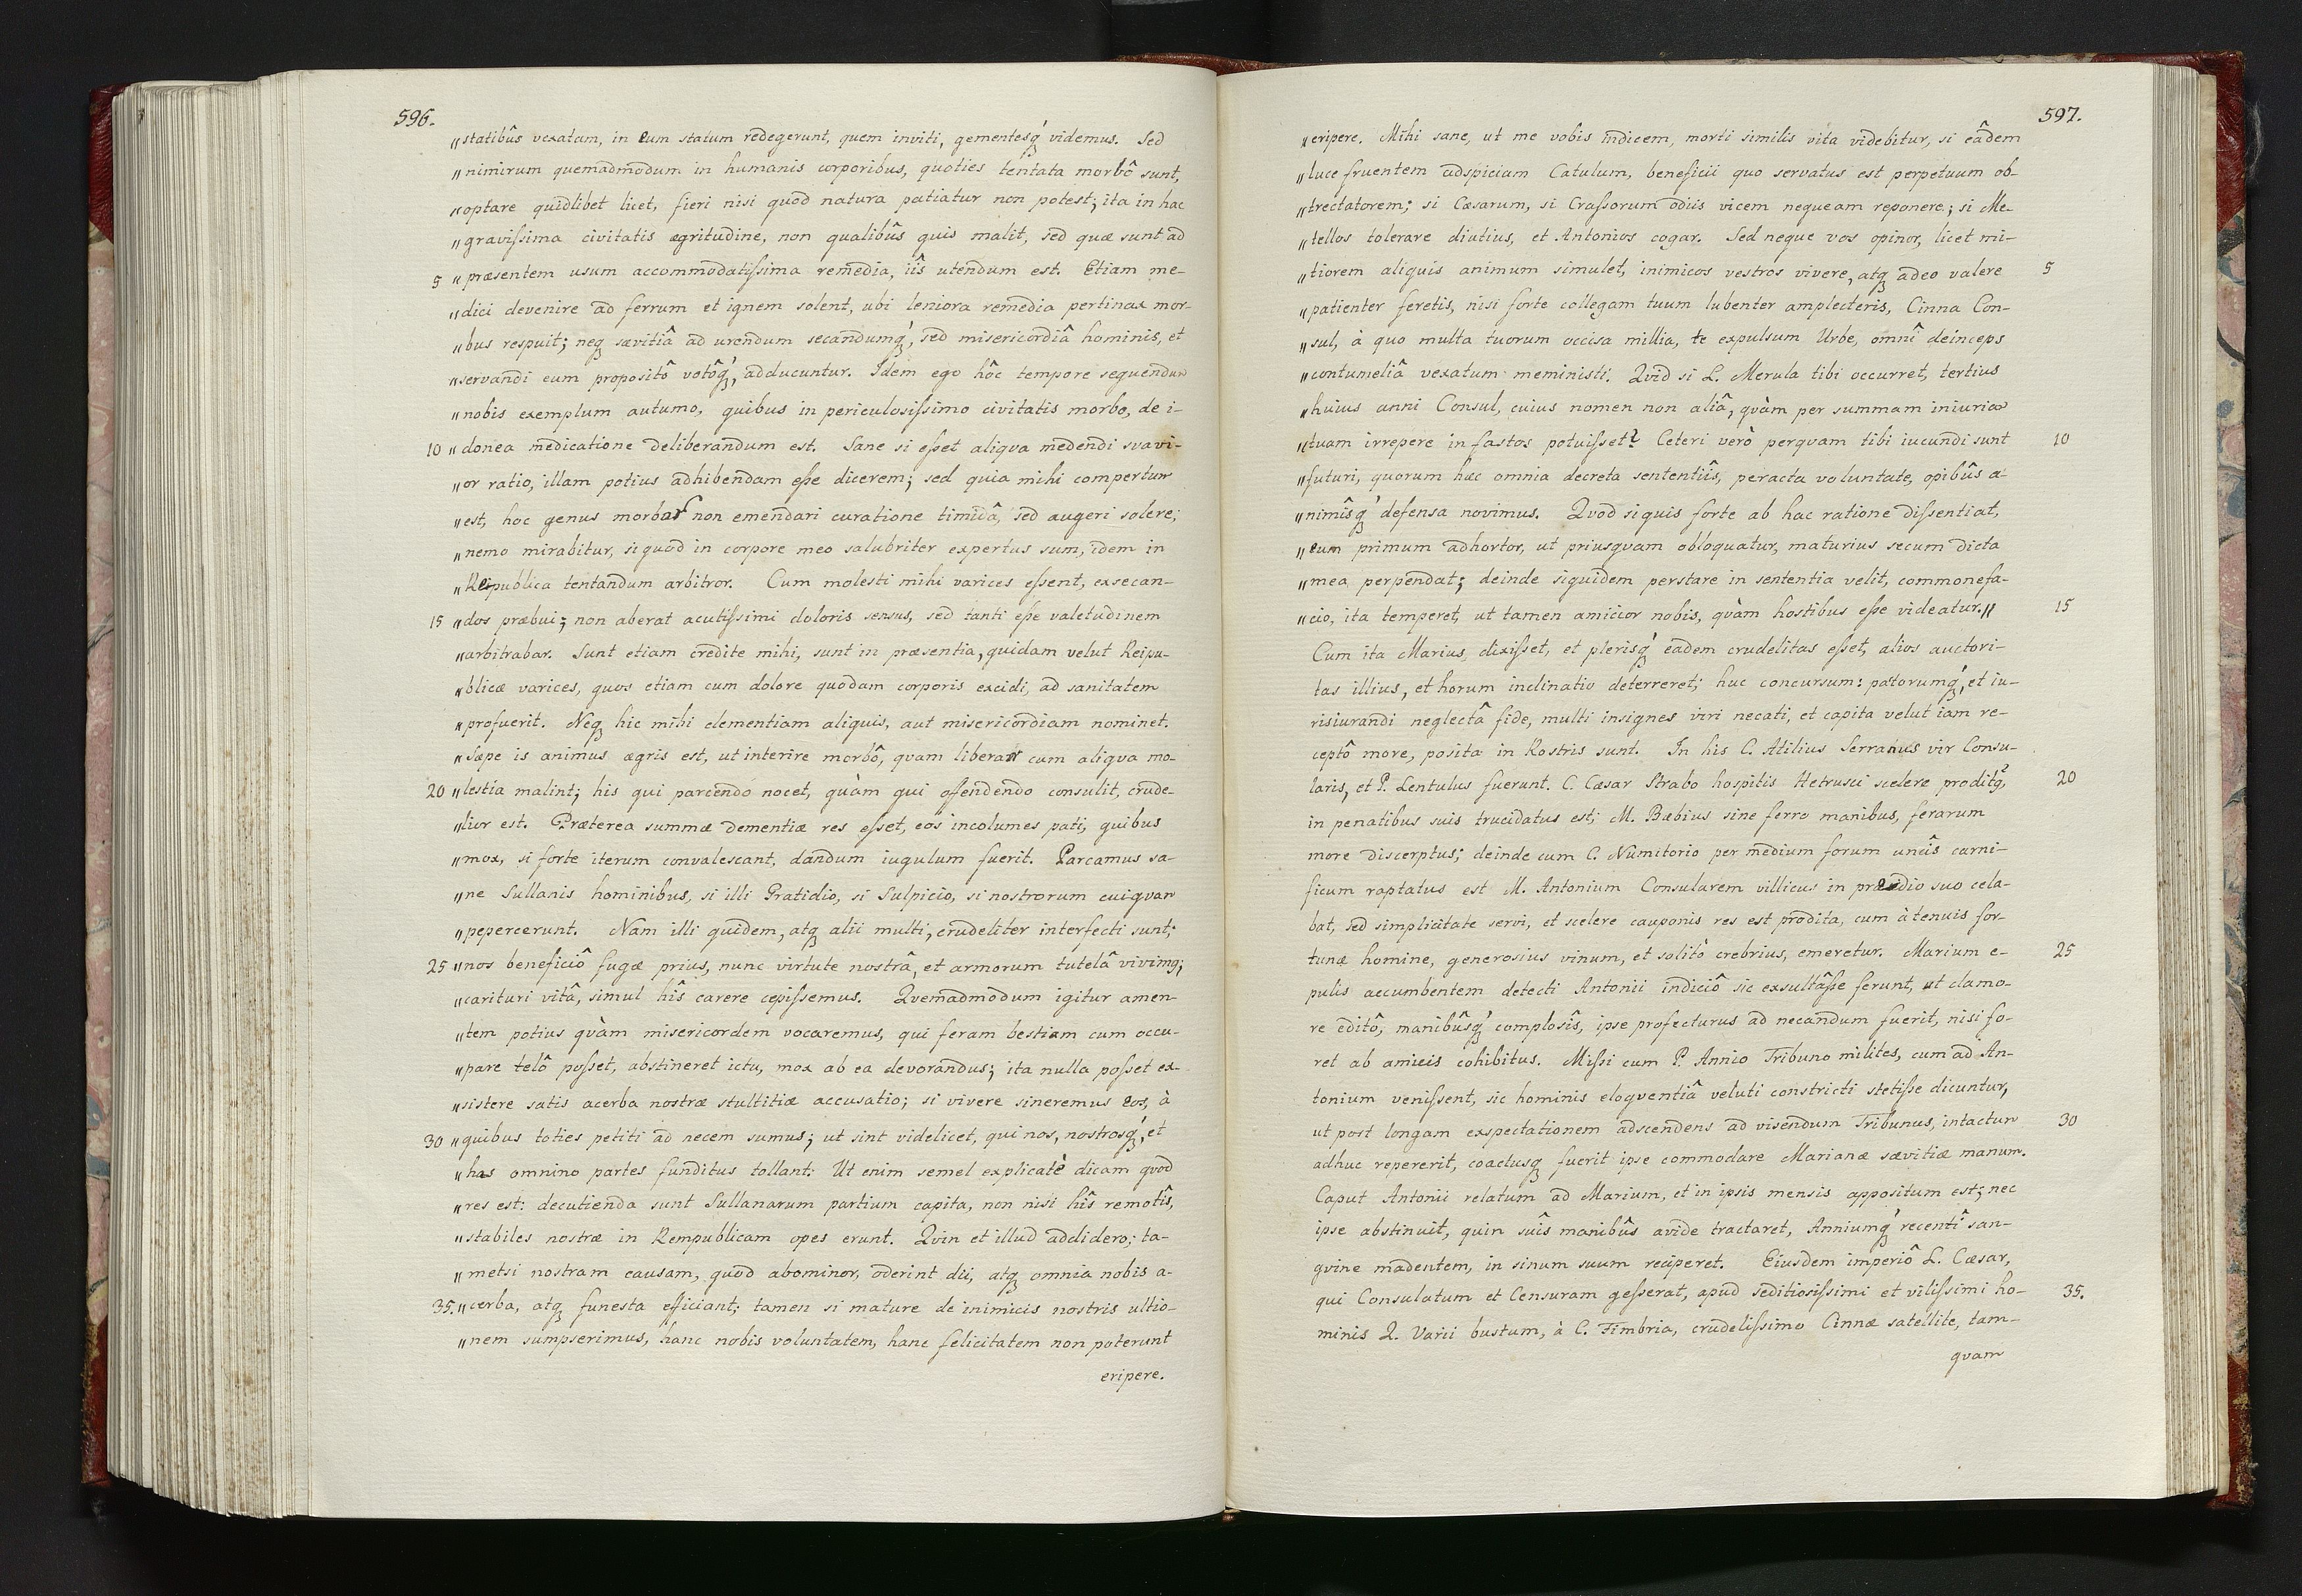 596.
„statibûs vexatam, in eum statum redegerunt, quem inviti, gementesq́ videmus. Sed
„nimirum quemadmodum in humanis corporibus, quoties tentata morbô sunt,
„optare quidlibet licet, fieri nisi quod natura patiatur non potest; ita in hac
„gravissima civitatis ægritudine, non qualibûs quis malit, sed quæ sunt ad
5 „præsentem usum accommodatissima remedia, iîs utendum est. Etiam me-
„dici devenire ad ferrum et ignem solent, ubi leniora remedia pertinax mor-
„bus respuit; neq sævitiâ ad urendum secandumq́, sed misericordiâ hominis, et
„servandi eum propositô votôq́, adducuntur. Idem ego hôc tempore sequendum
„nobis exemplum autumo, quibus in periculosissimo civitatis morbo, de i-
10 „donea medicatione deliberandum est. Sane si esset aliqva medendi svavi-
„or ratio, illam potius adhibendam esse dicerem; sed quia mihi compertum
„est, hoc genus morbos non emendari curatione timidâ, sed augeri solere;
„nemo mirabitur, si quod in corpore meo salubriter expertus sum, idem in
„Republica tentandum arbitror. Cum molesti mihi varices essent, exsecan-
15 „dos præbui; non aberat acutissimi doloris sensus, sed tanti esse valetudinem
„arbitrabar. Sunt etiam credite mihi, sunt in præsentia, quidam velut Reipu-
„blicæ varices, quos etiam cum dolore quodam corporis excidi, ad sanitatem
„profuerit. Neq hic mihi clementiam aliquis, aut misericordiam nominet.
„Sæpe is animus ægris est, ut interire morbô, qvam liberari cum aliqva mo-
20 „lestia malint; his qui parcendo nocet, quàm qui offendendo consulit, crude-
„lior est. Præterea summæ dementiæ res esset, eos incolumes pati, quibus
„mox, si forte iterum convalescant, dandum iugulum fuerit. Parcamus sa-
„ne Sullanis hominibus, si illi Gratidio, si Sulpicio, si nostrorum cuiqvam
„pepercerunt. Nam illi quidem, atq alii multi, crudeliter interfecti sunt;
25 „nos beneficiô fugæ prius, nunc virtute nostrâ, et armorum tutelâ vivimq;
„carituri vitâ, simul hîs carere cepissemus. Qvemadmodum igitur amen-
„tem potius quàm misericordem vocaremus, qui feram bestiam cum occu-
„pare telô posset, abstineret ictu, mox ab ea devorandus; ita nulla posset ex-
„sistere satis acerba nostræ stultitiæ accusatio; si vivere sineremus eos, à
30 „quibus toties petiti ad necem sumus; ut sint videlicet, qui nos, nostrosq́, et
„has omnino partes funditus tollant: Ut enim semel explicatè dicam qvod
„res est: decutienda sunt Sullanarum partium capita, non nisi hîs remotîs,
„stabiles nostræ in Rempublicam opes erunt. Qvin et illud addidero; ta-
„metsi nostram causam, quod abominor, oderint dii, atq omnia nobis a-
35. „cerba, atq funesta efficiant; tamen si mature de inimicis nostris ultio-
„nem sumpserimus, hanc nobis voluntatem, hanc felicitatem non poterunt
eripere.
597.
„eripere. Mihi sane, ut me vobis indicem, morti similis vita videbitur, si eâdem
„luce fruentem adspiciam Catulum, beneficii quo servatus est perpetuum ob-
„trectatorem; si Cæsarum, si Crassorum odiis vicem nequeam reponere; si Me-
„tellos tolerare diutius, et Antonios cogar. Sed neque vos opinor, licet mi-
„tiorem aliquis animum simulet, inimicos vestros vivere, atq adeo valere 5
„patienter feretis, nisi forte collegam tuum lubenter amplecteris, Cinna Con-
„sul, à quo multa tuorum occisa millia, te expulsum Urbe, omnî deinceps
„contumeliâ vexatum meministi. Qvid si L. Merula tibi occurret, tertius
„huius anni Consul, cuius nomen non aliâ, qvàm per summam iniuriam
„tuam irrepere in fastos potuisset? Ceteri verò perquam tibi iucundi sunt 10
„futuri, quorum hæc omnia decreta sententiîs, peracta voluntate, opibûs a-
„nimîsq́ defensa novimus. Qvod si quis forte ab hac ratione dissentiat,
„eum primum adhortor, ut priusqvam obloquatur, maturius secum dicta
„mea perpendat; deinde siquidem perstare in sententia velit, commonefa-
„cio, ita temperet, ut tamen amicior nobis, qvàm hostibus esse videatur.„ 15
Cum ita Marius, dixisset, et plerisq́ eadem crudelitas esset, alios auctori-
tas illius, et horum inclinatio deterreret; huc concursum: pactorumq́, et iu-
risiurandi neglectâ fide, multi insignes viri necati, et capita velut iam re-
ceptô more, posita in Rostris sunt. In his C. Atilius Serranus vir Consu-
laris, et P. Lentulus fuerunt. C. Cæsar Strabo hospitis Hetrusci scelere proditq, 20
in penatibus suis trucidatus est; M. Bæbius sine ferro manibus, ferarum
more discerptus; deinde cum C. Numitorio per medium forum uncîs carni-
ficum raptatus est M. Antonium Consularem villicus in prædio suo cela-
bat, sed simplicitate servi, et scelere cauponis res est prodita, cum à tenuis for-
tunæ homine, generosius vinum, et solitò crebrius, emeretur. Marium e- 25
pulis accumbentem detecti Antonii indiciô sic exsultâsse ferunt, ut clamo-
re editô, manibûsq́ complosîs, ipse profecturus ad necandum fuerit, nisi fo-
ret ab amicis cohibitus. Missi cum P. Annio Tribuno milites, cum ad An-
tonium venissent, sic hominis eloqventiâ veluti constricti stetisse dicuntur,
ut post longam exspectationem adscendens ad visendum Tribunus, intactum 30
adhuc repererit, coactusq fuerit ipse commodare Marianæ sævitiæ manum.
Caput Antonii relatum ad Marium, et in ipsis mensis appositum est; nec
ipse abstinuit, quin suîs manibûs avide tractaret, Anniumq́ recentî san-
gvine madentem, in sinum suum reciperet. Eiusdem imperiô L. Cæsar,
qui Consulatum et Censuram gesserat, apud seditiosissimi et vilissimi ho- 35.
minis Q. Varii bustum, à C. Fimbria, crudelissimo Cinnæ satellite, tam-
qvam